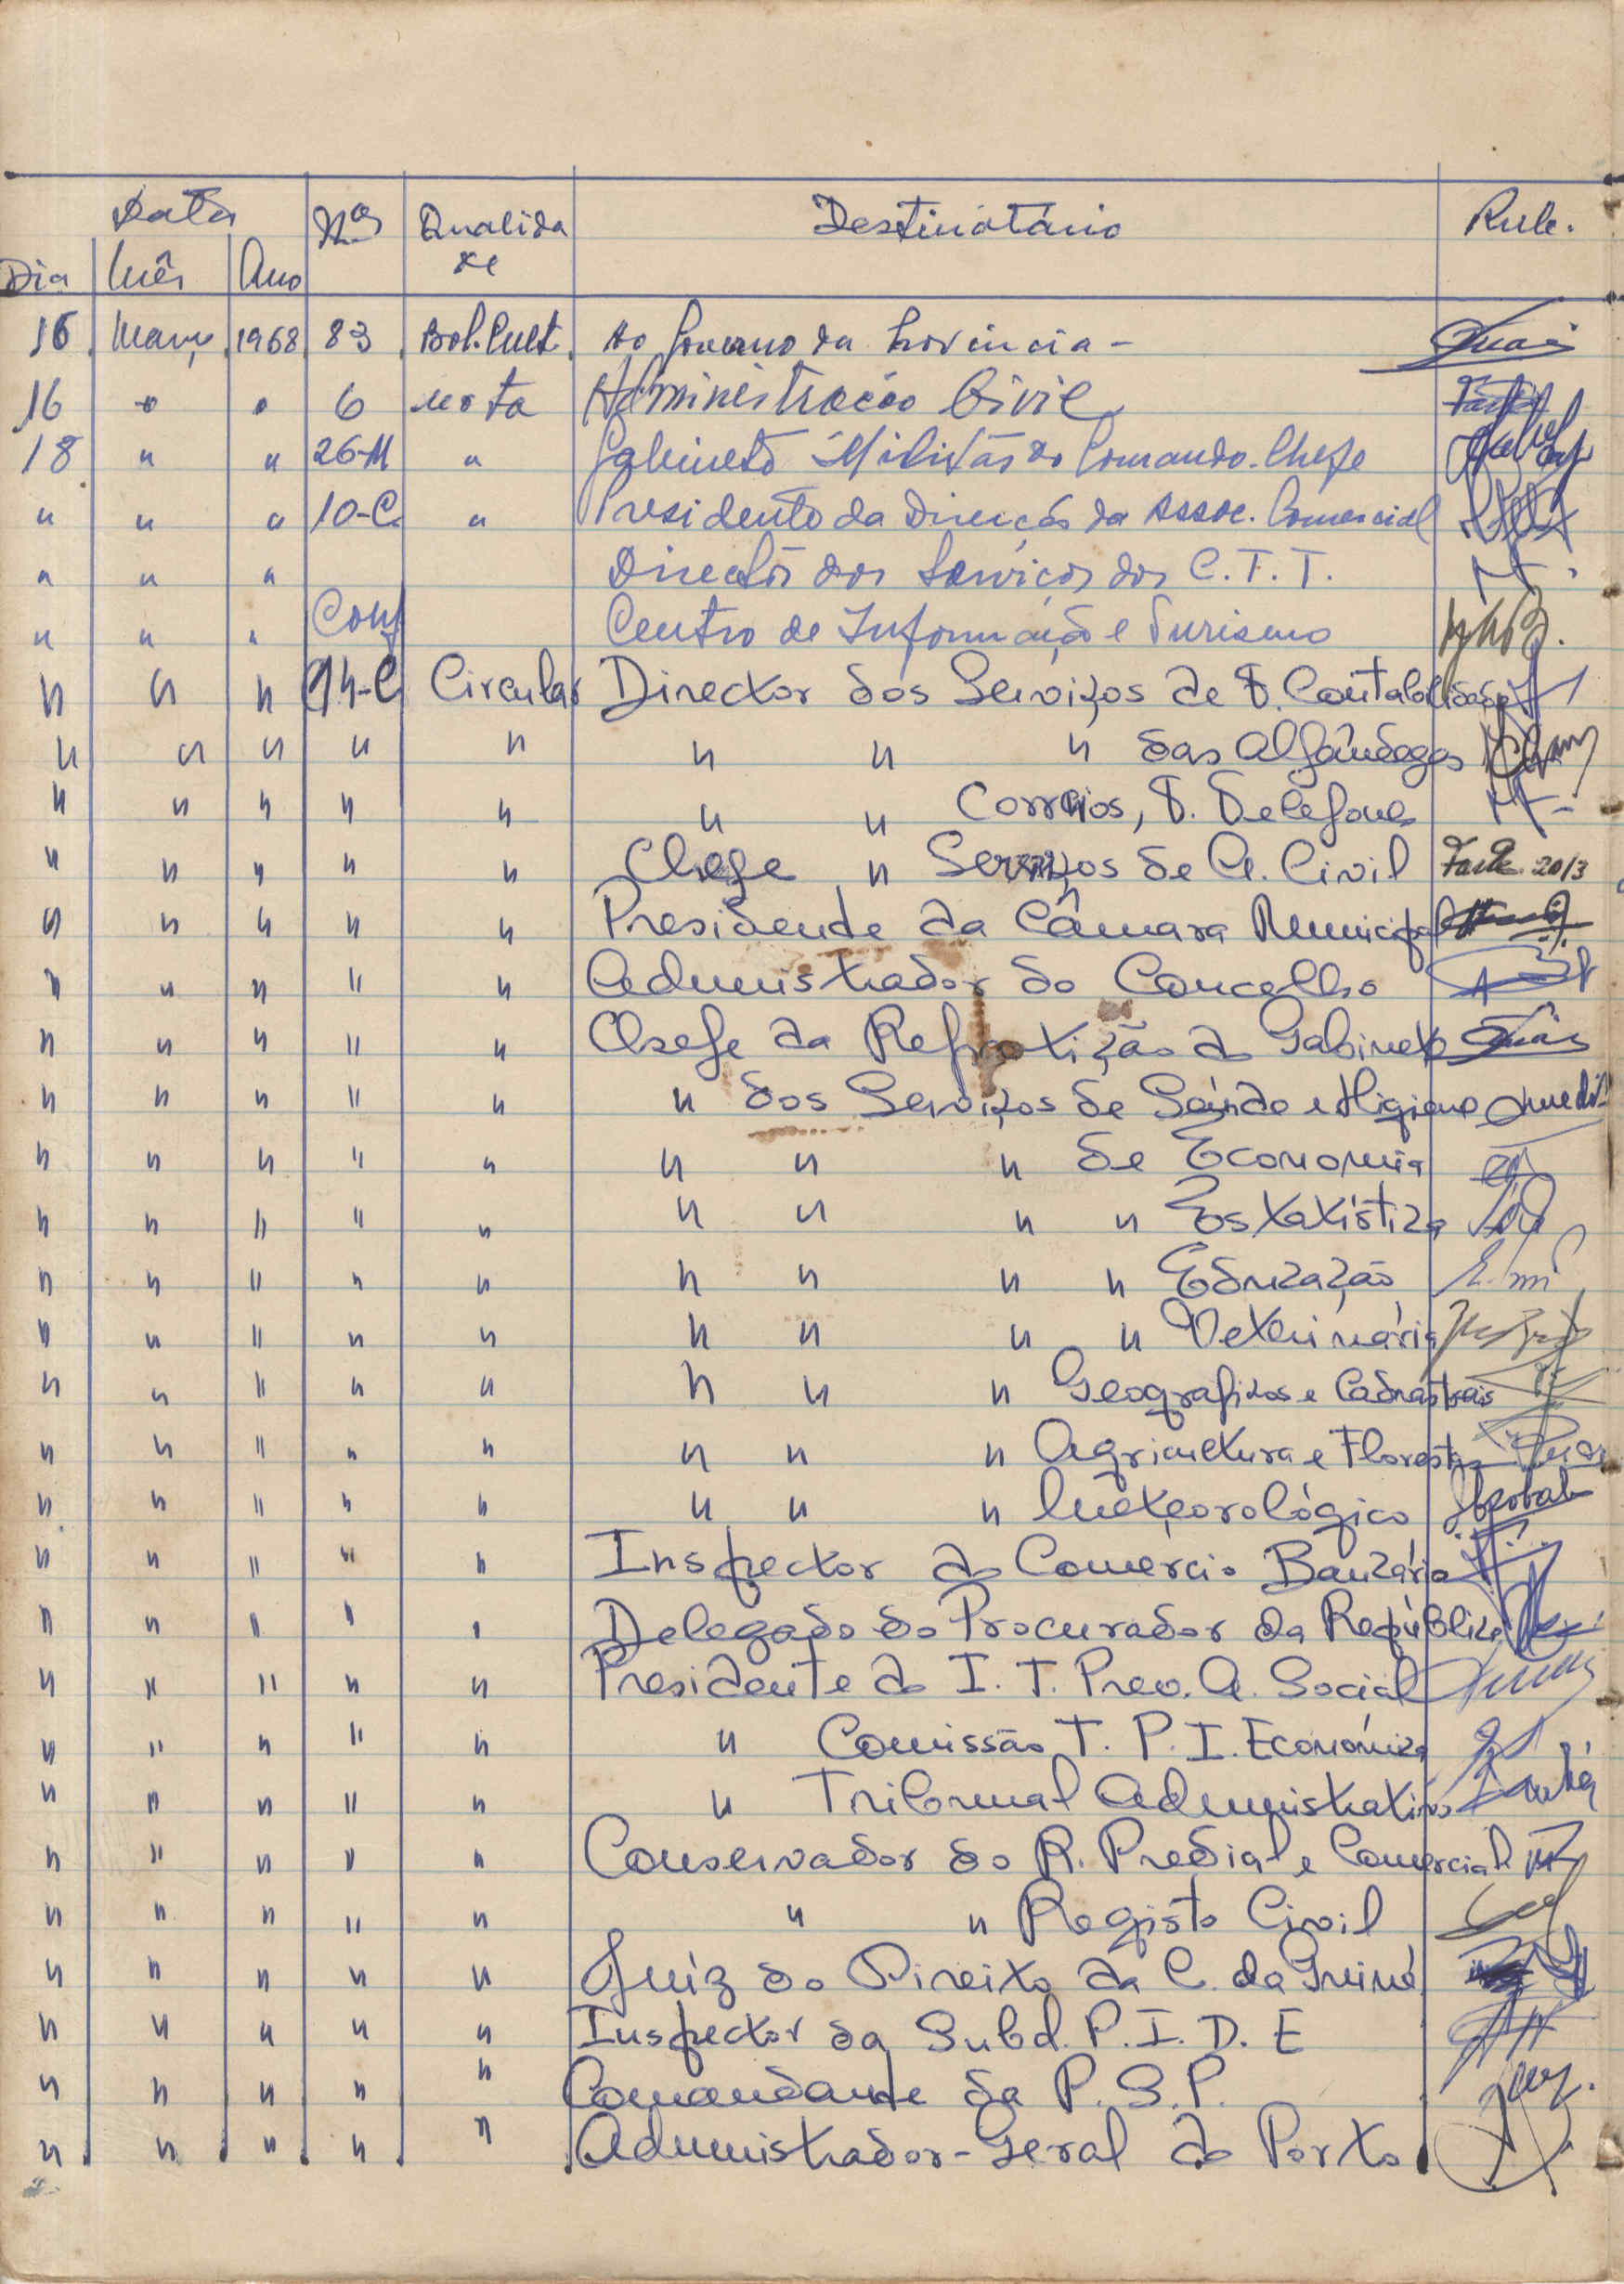 Data Nos Qualida Destinatário Rub.
Dia Mês Ano de
16 Março 1968 83 Bol. Cult. Ao Governo da Província -
16 " " 6 nota Administração Civil
18 " " 26-M " Gabinete Militar do Comando-Chefe
" " " 10-C. " Presidente da Direcção da Assoc. Comercial
" " " Director dos Serviços dos C.T.T.
" " " Conf Centro de Informação e Turismo
" " " 14-C Circular Director dos Serviços de F. Contabilidade
" " " " " " " " das Alfândegas
" " " " " " " Correios, T. Telefones
" " " " " Chefe " Serviços de A. Civil 20/3
" " " " " Presidente da Câmara Municipal
" " " " " Administrador do Concelho
" " " " " Chefe da Repartição do Gabinete
" " " " " " dos Serviços de Saúde e Higiene
" " " " " " " " de Economia
" " " " " " " " " Estatística
" " " " " " " " " Educação
" " " " " " " " " Veterinária
" " " " " " " " Geograficos e Cadastrais
" " " " " " " " Agricultura e Florestas
" " " " " " " " Meteorológico
" " " " " Inspector do Comércio Bancário
" " " " " Delegado do Procurador da República
" " " " " Presidente do I. T. Prev. A. Social
" " " " " " Comissão T. P. I. Económica
" " " " " " Tribunal Administrativo
" " " " " Conservador do R. Predial e Comercial
" " " " " " " Registo Civil
" " " " " Juiz do Direito da C. da Guiné
" " " " " Inspector da Subd. P. I. D. E
" " " " " Comandante da P. S. P.
" " " " " Administrador-Geral do Porto